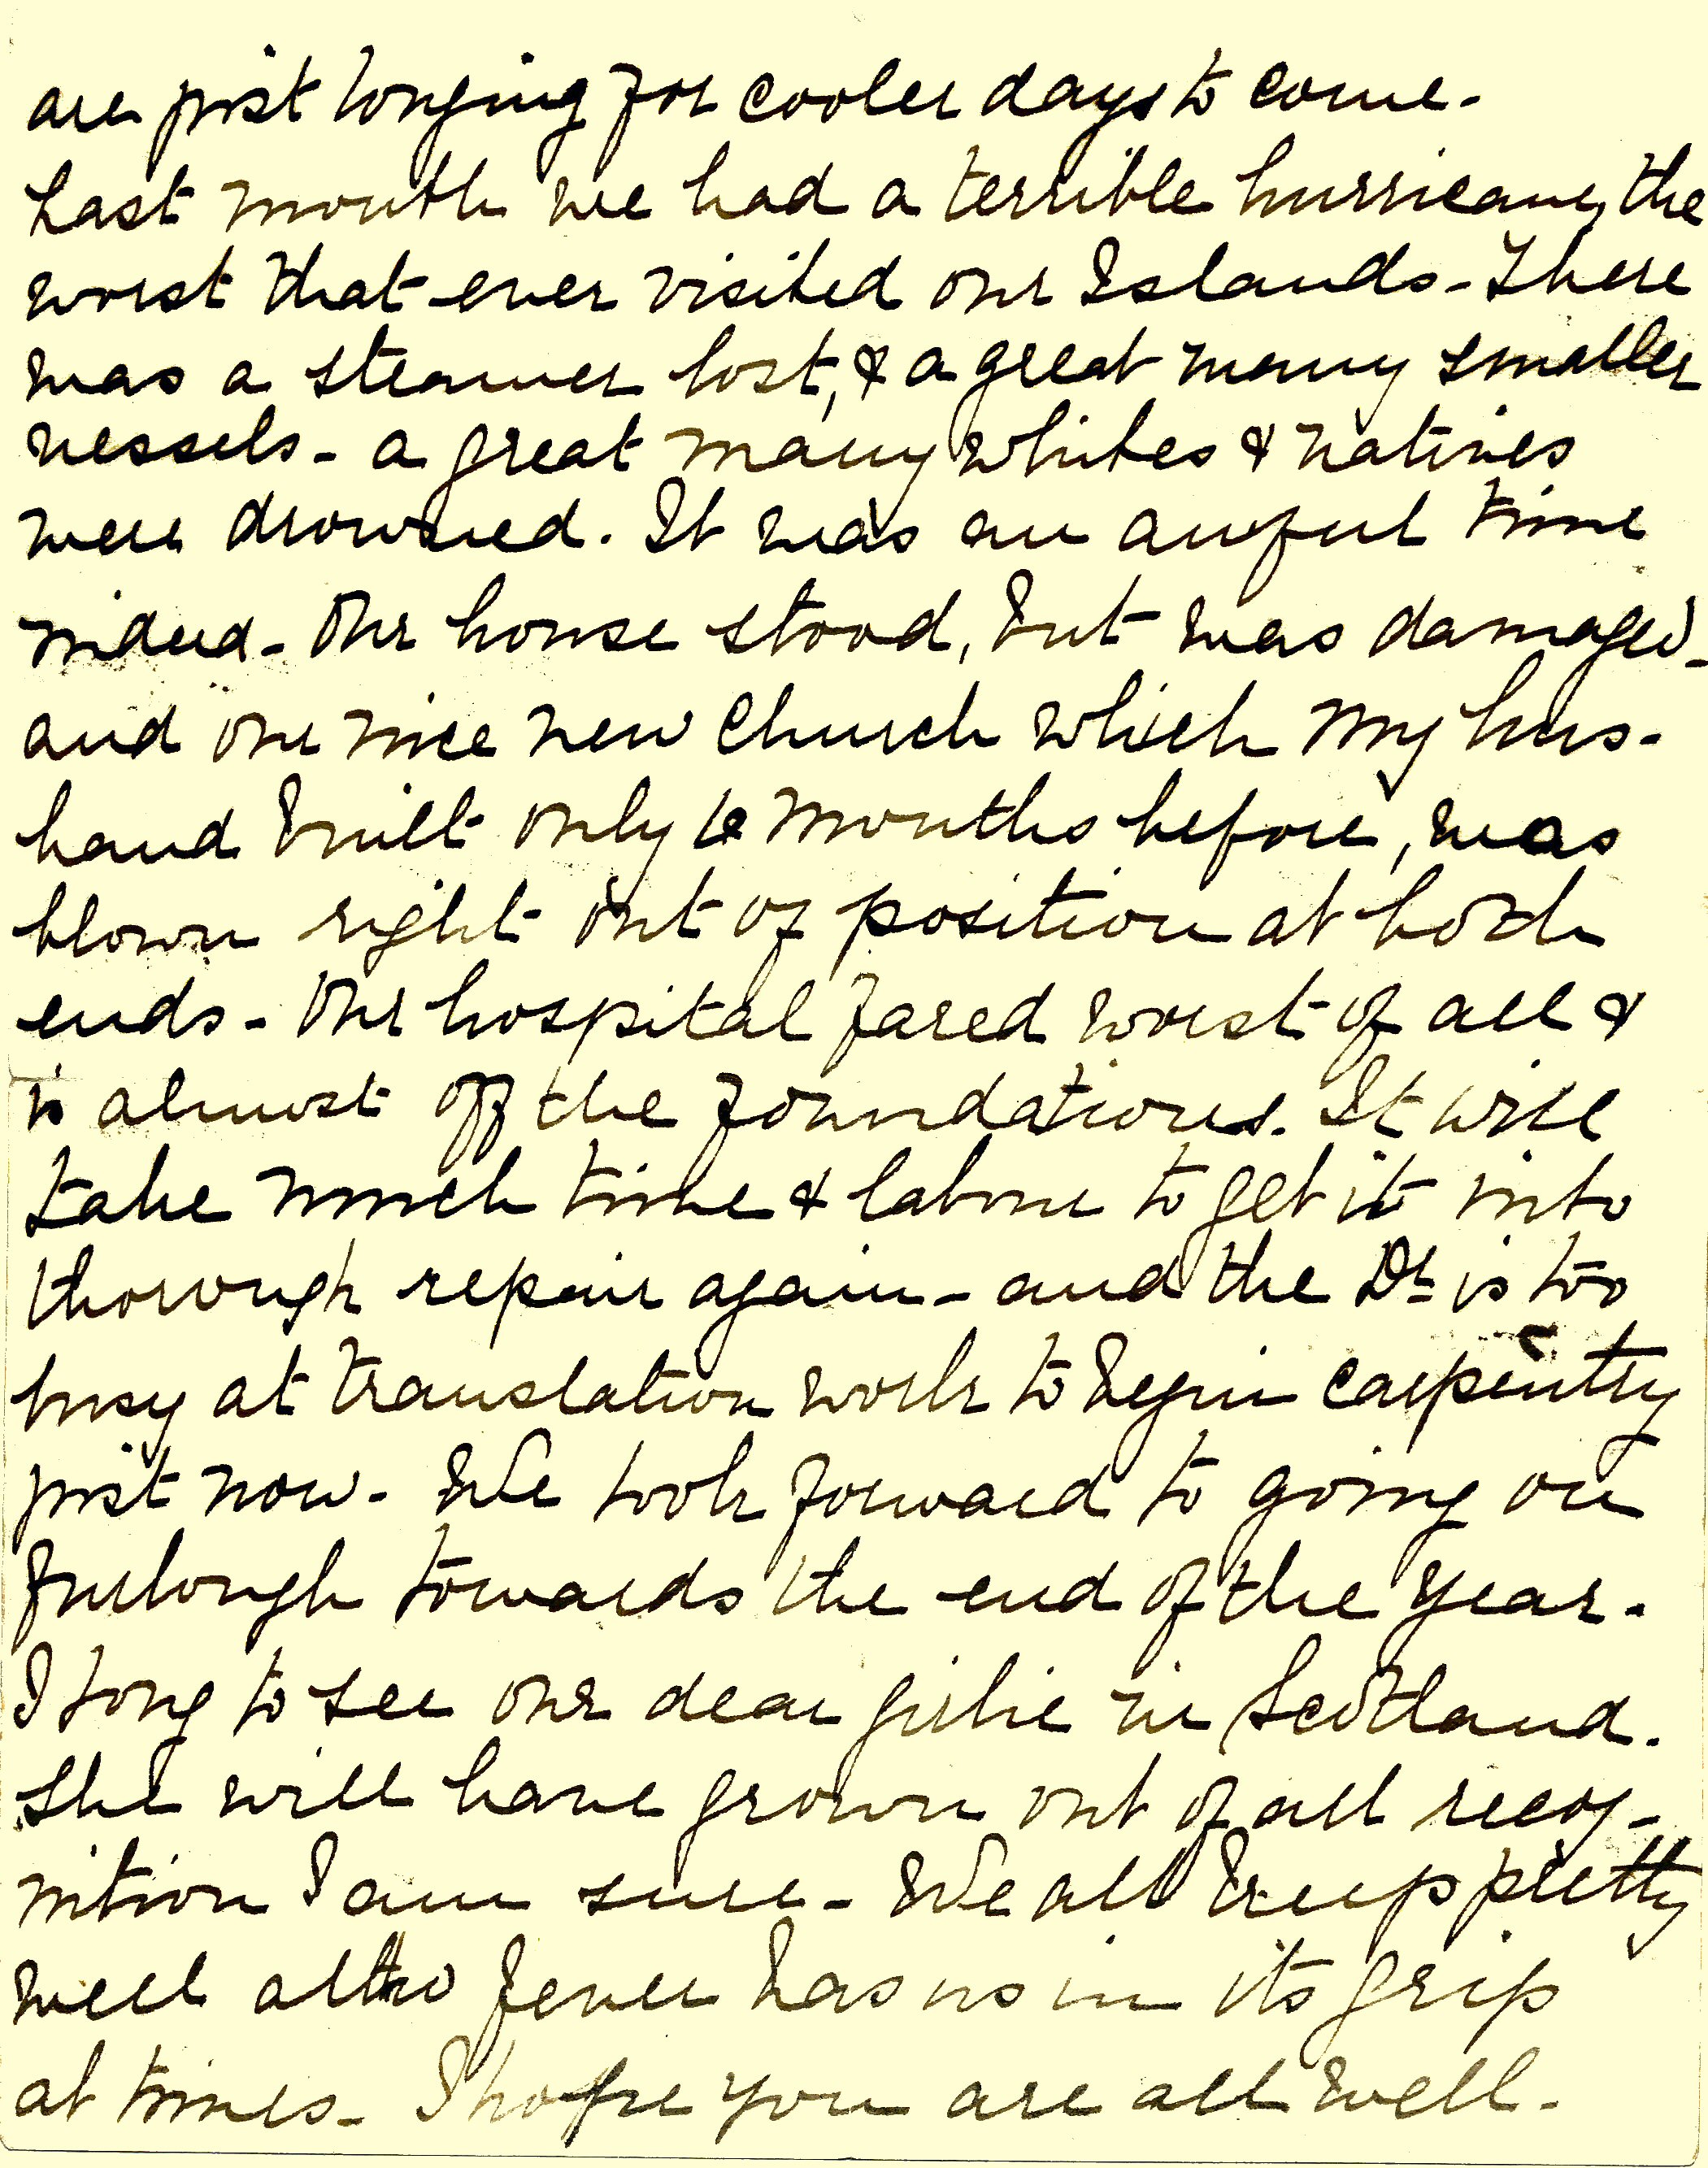 are just longing for cooler days to come.
Last month we had a terrible hurricane, the
worst that ever visited our Islands - There
was a steamer lost, & a great many smaller
vessels - a great many whites & natives
were drowned. It was an awful time
indeed - Our house stood, but was damaged -
and our nice new Church which my hus-
band built only months before, was
blown right out of position at both
ends - Our hospital fared worst of all &
is almost off the foundations. It will
take much time & labour to get it into
thorough repair again - and the Dr is too
busy at translation work to begin carpentry
just now - We look forward to going on
furlough towards the end of the year.
I long to see our dear girlie in Scotland.
She will have grown out of all recog-
nition I am sure - We all keep pretty
well altho fever has us in its grip
at times - I hope you are all well.